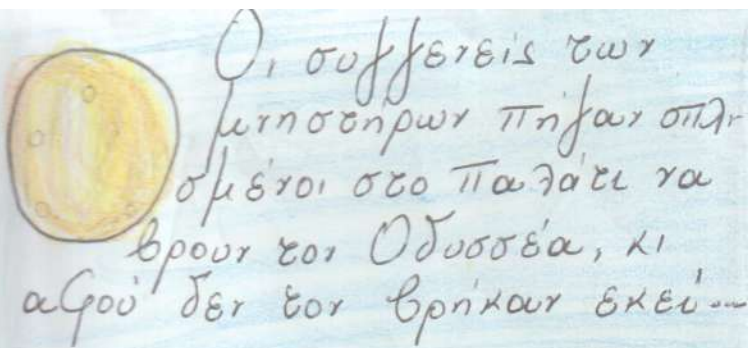 Οι συγγενείς των
μνηστήρων πήγαν οπλι
σμένοι στο παλάτι να
βρουν τον Οδυσσέα, κι
αφού δεν τον βρήκαν εκεί...